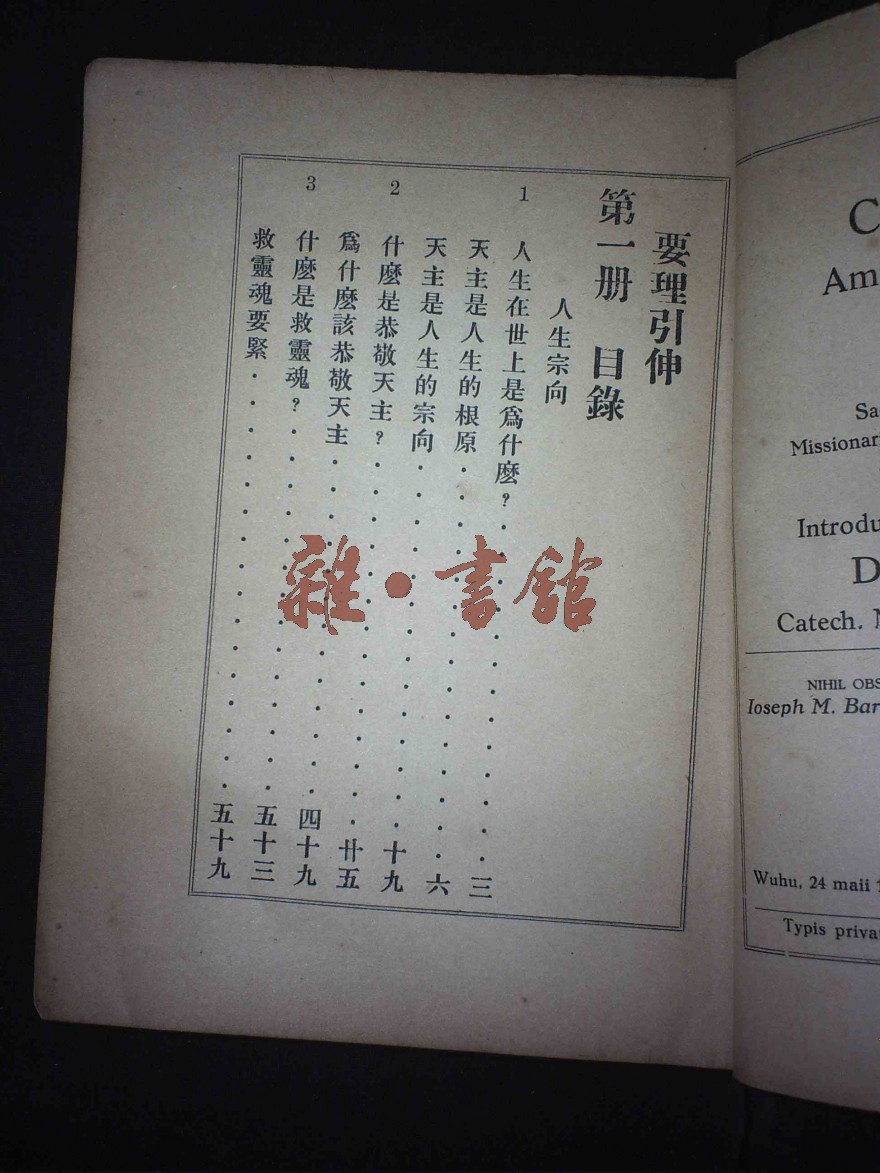 要理引伸
第一册 目錄
人生宗向
1 人生在世上是爲什麽?. . . . . . . . . . . . . 三
天主是人生的根原. . . . . . . . . . . . . . . 六
天主是人生的宗向. . . . . . . . . . . . . . 十九
2 什麽是恭敬天主?. . . . . . . . . . . . . . 廿五
爲什麽該恭敬天主. . . . . . . . . . . . . 四十九
3 什麽是救靈魂?. . . . . . . . . . . . . . 五十三
救靈魂要緊. . . . . . . . . . . . . . . . 五十九
雜·書館
C
Am
Sa
Missionari
Introdu
D
Catech.
NIHIL OBS
Ioseph M. Bar
Wuhu, 24 maii
Typis priva